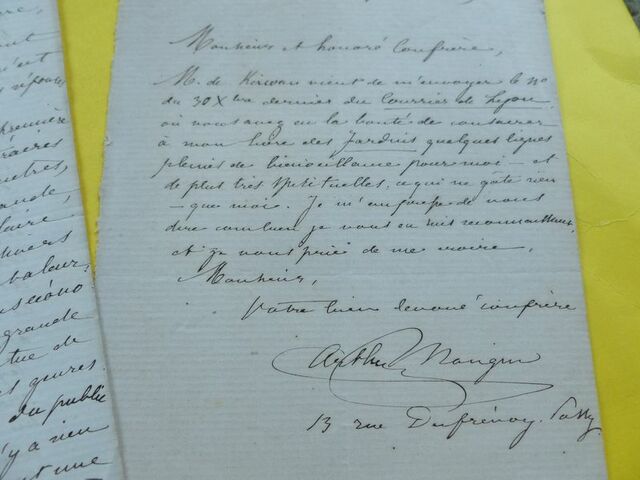 Monsieur et honoré Confrère,
M. de Kirwan vient de m'envoyer le No
du 30 Xbre dernier du Courrier de Lyon
où vous avez eu la bonté de consacrer
à mon livre des Jardins quelques lignes
pleines de bienveillance pour moi – et
de plus très spirituelles, ce qui ne gâte rien
– que moi. Je m'empresse de vous
dire combien je vous en suis reconnaissant,
et je vous prie de me croire,
Monsieur,
Votre bien dévoué confrère
Arthur Mangin
13 rue Dufrénoy. Passy.
première
grande
laire
valeur,
grande
tue de
du public
n'y a rien
une